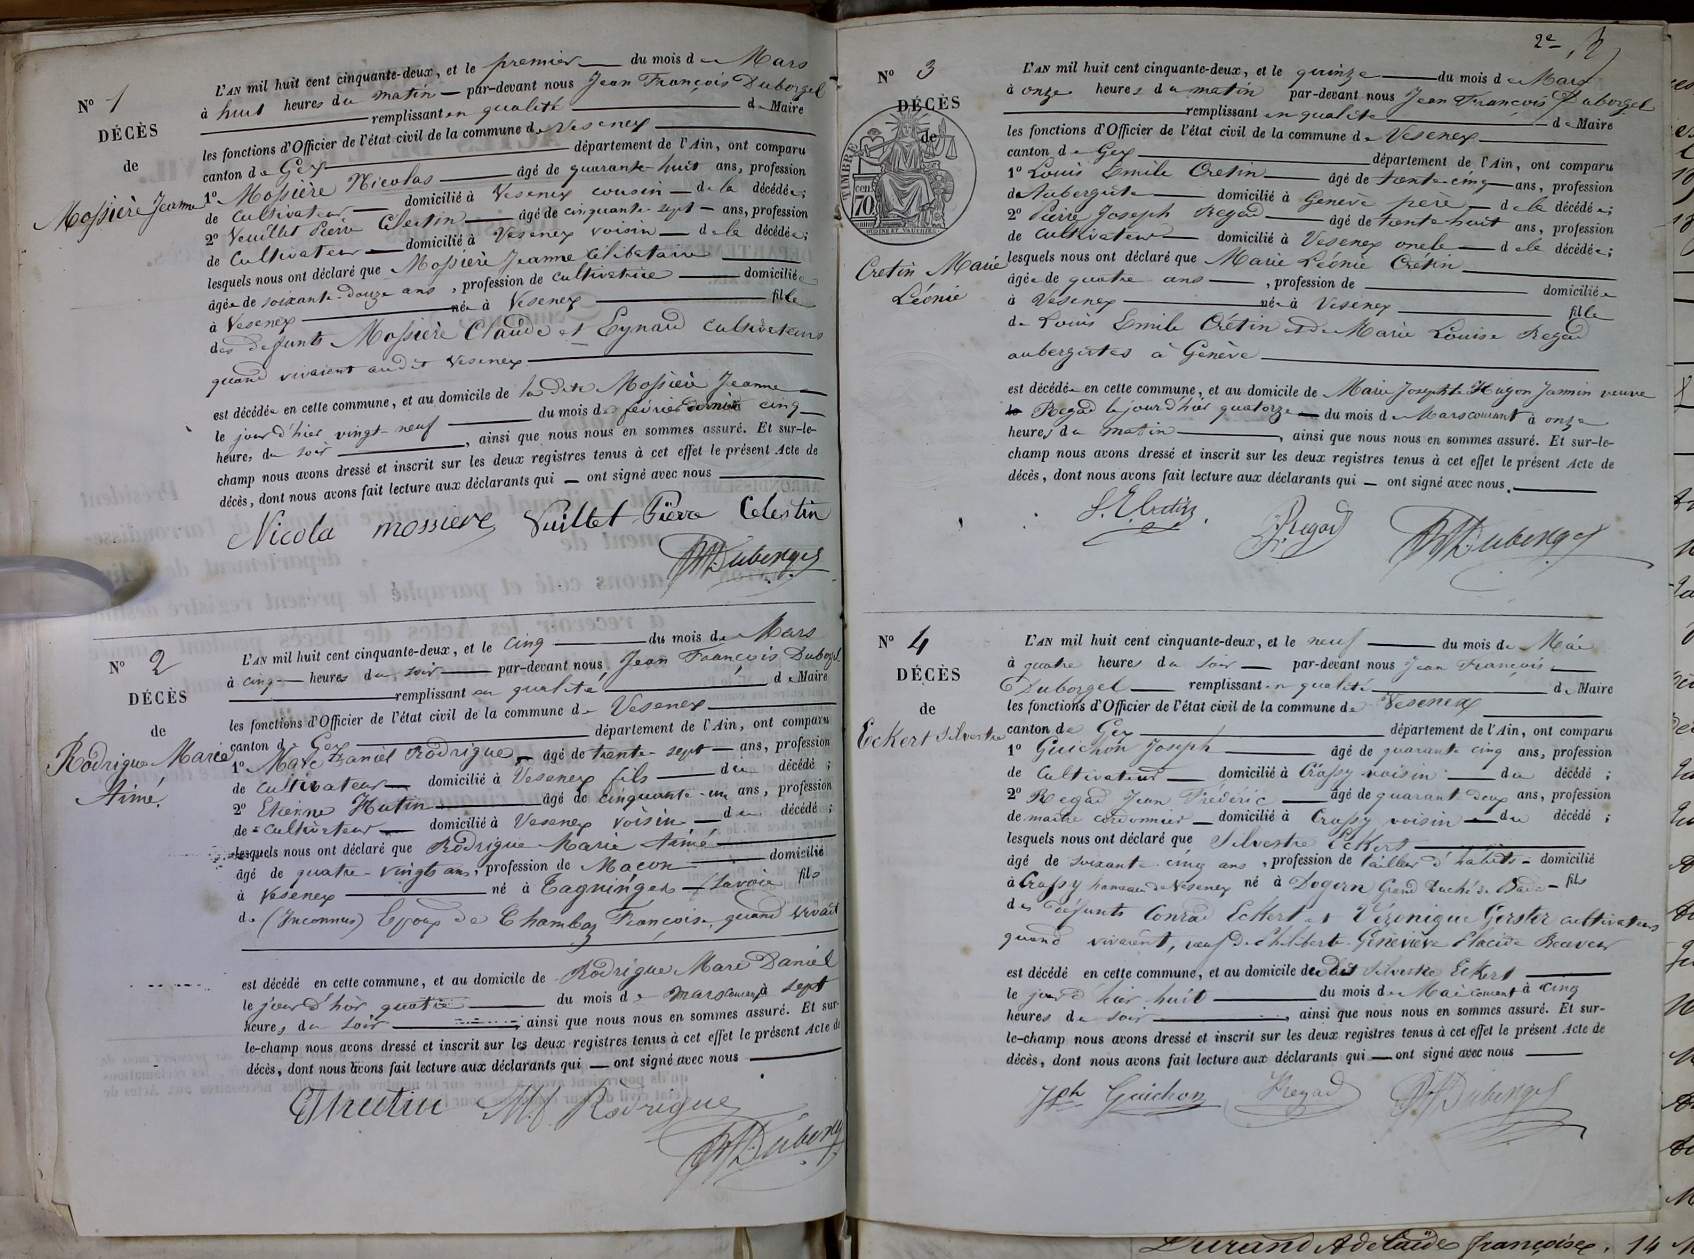 N° 1
DÉCÈS
de
Mossière Jeanne
L'AN mil huit cent cinquante-deux, et le premier du mois de Mars
à huit heures du matin par-devant nous Jean François Duborgel
remplissant en qualité de Maire
les fonctions d'Officier de l'état civil de la commune de Vesenex
canton de Gex département de l'Ain, ont comparu
1° Mossière Nicolas âgé de quarante-huit ans, profession
de Cultivateur domicilié à Vesenex cousin de la décédée;
2° Vuillet Pierre Célestin âgé de cinquante-sept ans, profession
de Cultivateur domicilié à Vesenex voisin de la décédée;
lesquels nous ont déclaré que Mossière Jeanne Célibataire
âgée de soixante-douze ans, profession de cultivatrice domiciliée
à Vesenex née à Vesenex fille
des defunts Mossière Claude et Eynard cultivateurs
quand vivaient audit Vesenex
est décédée en cette commune, et au domicile de la dite Mossière Jeanne
le jour d'hier vingt-neuf du mois de février cinq
heures du soir, ainsi que nous nous en sommes assuré. Et sur-le-
champ nous avons dressé et inscrit sur les deux registres tenus à cet effet le présent Acte de
décès, dont nous avons fait lecture aux déclarants qui ont signé avec nous
Nicola mossiere Vuillet Pierre Celestin
Duborgel
N° 2
DÉCÈS
de
Rodrigue Marie
Aimé.
L'AN mil huit cent cinquante-deux, et le cinq du mois de Mars
à cinq heures du soir par-devant nous Jean François Duborgel
remplissant en qualité de Maire
les fonctions d'Officier de l'état civil de la commune de Vesenex
canton de Gex département de l'Ain, ont comparu
1° Marc Daniel Rodrigue âgé de trente-sept ans, profession
de cultivateur domicilié à Vesenex fils du décédé;
2° Etienne Hutin âgé de cinquante-un ans, profession
de cultivateur domicilié à Vesenex voisin du décédé;
lesquels nous ont déclaré que Rodrigue Marie Aimé
âgé de quatre-vingts ans, profession de Maçon domicilié
à Vesenex né à Tagninges Savoie fils
de (Inconnus) Epoux de Chambaz Françoise, quand vivait
est décédé en cette commune, et au domicile de Rodrigue Marc Daniel
le jour d'hier quatre du mois de mars courant à sept
heures du soir, ainsi que nous nous en sommes assuré. Et sur-
le-champ nous avons dressé et inscrit sur les deux registres tenus à cet effet le présent Acte de
décès, dont nous avons fait lecture aux déclarants qui ont signé avec nous
Ehutin Rodrigue
Duborgel
2e
N° 3
DÉCÈS
de
TIMBRE
70 cen
Cretin Marie
Léonie
L'AN mil huit cent cinquante-deux, et le quinze du mois de Mars
à onze heures du matin par-devant nous Jean François Duborgel
remplissant en qualité de Maire
les fonctions d'Officier de l'état civil de la commune de Vesenex
canton de Gex département de l'Ain, ont comparu
1° Louis Emile Cretin âgé de trente-cinq ans, profession
de Aubergiste domicilié à Genève père de la décédée;
2° Pierre Joseph Regad âgé de trente-huit ans, profession
de cultivateur domicilié à Vesenex oncle de la décédée;
lesquels nous ont déclaré que Marie Léonie Crétin
âgée de quatre ans, profession de domiciliée
à Vesenex née à Vesenex fille
de Louis Emile Crétin et de Marie Louise Regad
aubergistes à Genève
est décédée en cette commune, et au domicile de Marie Josephte Hugon Jannin veuve
Regad le jour d'hier quatorze du mois de Mars courant à onze
heures du matin, ainsi que nous nous en sommes assuré. Et sur-le-
champ nous avons dressé et inscrit sur les deux registres tenus à cet effet le présent Acte de
décès, dont nous avons fait lecture aux déclarants qui ont signé avec nous.
L. E. Cretin. Regad Duborgel
N° 4
DÉCÈS
de
Eckert Silvestre
L'AN mil huit cent cinquante-deux, et le neuf du mois de Mai
à quatre heures du soir par-devant nous Jean François
Duborgel remplissant en qualité de Maire
les fonctions d'Officier de l'état civil de la commune de Vesenex
canton de Gex département de l'Ain, ont comparu
1° Guichon Joseph âgé de quarante cinq ans, profession
de Cultivateur domicilié à Crassy voisin du décédé;
2° Regad Jean Frédéric âgé de quarante deux ans, profession
de maitre cordonnier domicilié à Crassy voisin du décédé;
lesquels nous ont déclaré que Silvestre Eckert
âgé de soixante-cinq ans, profession de tailleur d'habits domicilié
à Crassy hameau de Vesenex né à Dogern Grand Duché de Bade fils
des défunts Conrad Eckert et Véronique Gerster cultivateurs
quand vivaient, veuf de Philiberte Geneviève Placide
est décédé en cette commune, et au domicile du dit Silvestre Eckert
le jour d'hier huit du mois de Mai courant à cinq
heures du soir, ainsi que nous nous en sommes assuré. Et sur-
le-champ nous avons dressé et inscrit sur les deux registres tenus à cet effet le présent Acte de
décès, dont nous avons fait lecture aux déclarants qui ont signé avec nous
Jph Guichon Regad Duborgel
Durand Adelaïde françoise. 14